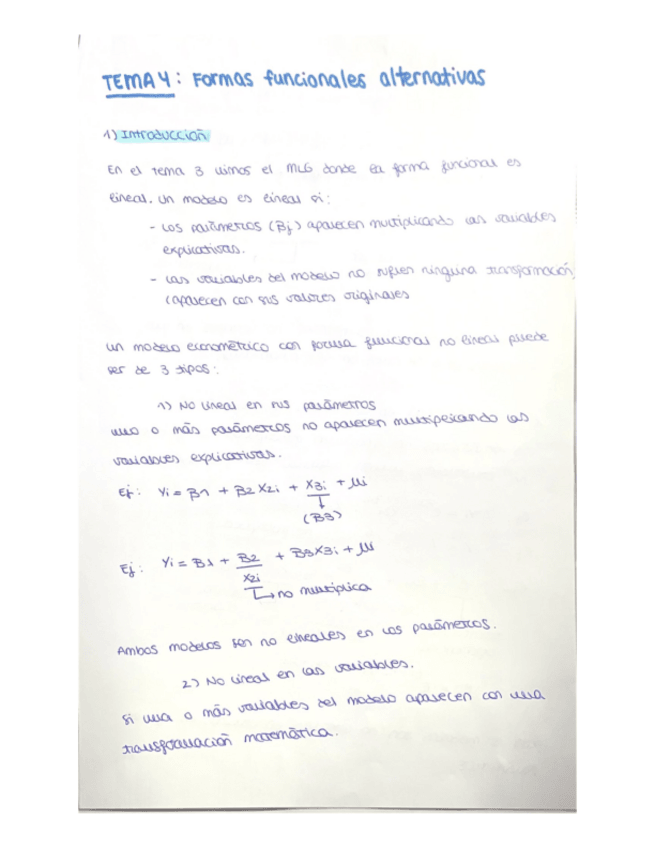 TEMA 4: Formas funcionales alternativas
1) Introducción
En el tema 3 vimos el MLG donde la forma funcional es
lineal. Un modelo es lineal si:
- Los parámetros (Bj) aparecen multiplicando las variables
explicativas.
- Las variables del modelo no sufren ninguna transformación
(aparecen con sus valores originales
Un modelo econométrico con forma funcional no lineal puede
ser de 3 tipos:
1) No lineal en sus parámetros
uno o más parámetros no aparecen multiplicando las
variables explicativas.
Ej: Yi = B1 + B2 X2i + X3i + Ui
(B3)
Ej: Yi = B1 + B2 + B3X3i + Ui
X2i
↳ no multiplica
Ambos modelos son no lineales en los parámetros.
2) No lineal en las variables.
Si una o más variables del modelo aparecen con una
transformación matemática.